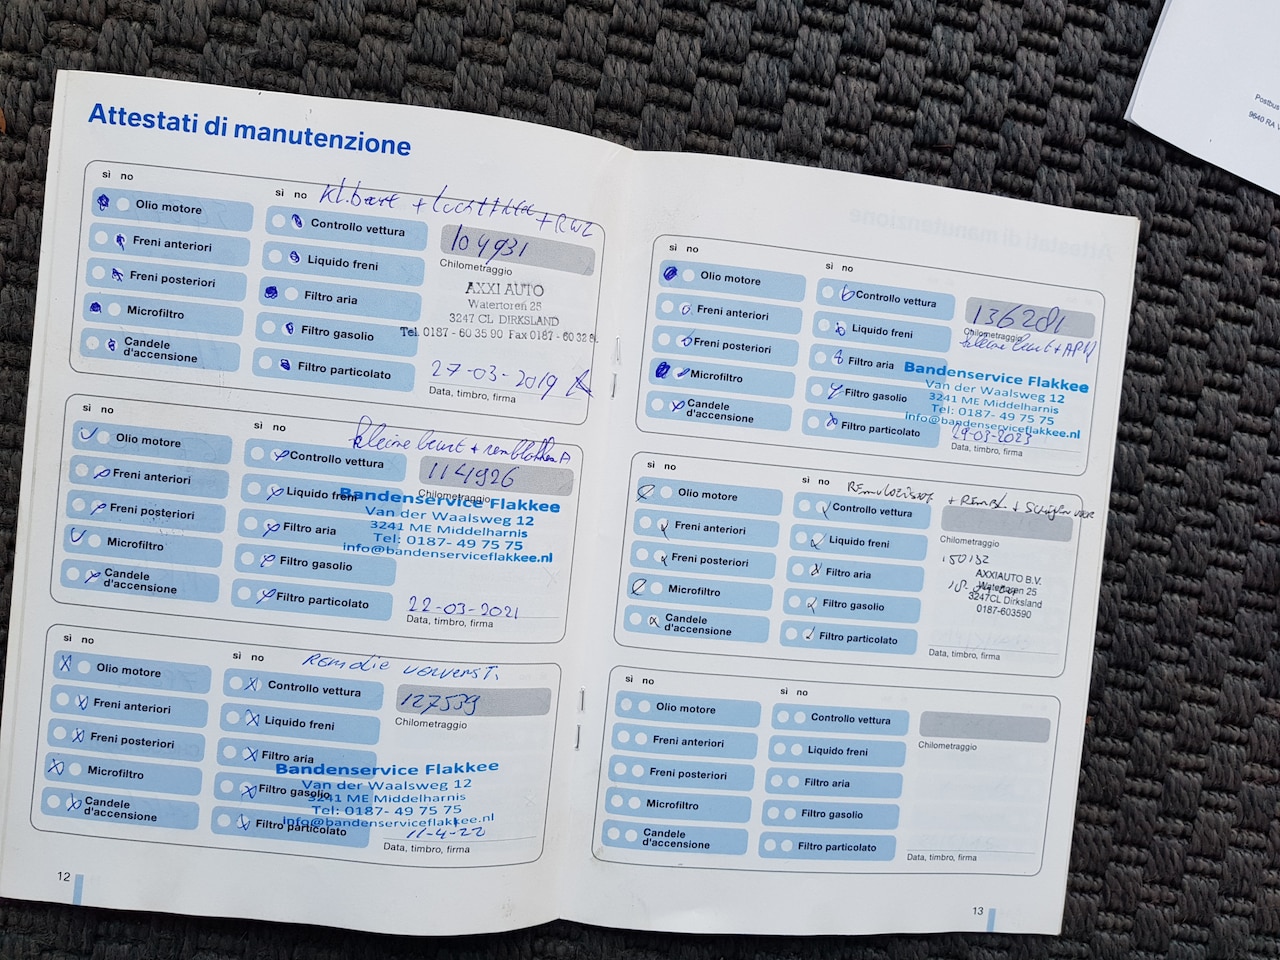 Attestati di manutenzione
sì no
Olio motore
Freni anteriori
Freni posteriori
Microfiltro
Candele
d'accensione
sì no
Kl.beurt + luchtfilter
+ RWZ
Controllo vettura
Liquido freni
Filtro aria
Filtro gasolio
Filtro particolato
104931
Chilometraggio
AXXI AUTO
Watertoren 25
3247 CL DIRKSLAND
Tel. 0187 - 60 35 90 Fax 0187 - 60 32 8
27-03-2019
Data, timbro, firma
sì no
Olio motore
Freni anteriori
Freni posteriori
Microfiltro
Candele
d'accensione
sì no
kleine beurt + remblokken A
Controllo vettura
Liquido freni
Filtro aria
Filtro gasolio
Filtro particolato
114926
Chilometraggio
Bandenservice Flakkee
Van der Waalsweg 12
3241 ME Middelharnis
Tel: 0187- 49 75 75
info@bandenserviceflakkee.nl
22-03-2021
Data, timbro, firma
sì no
Olio motore
Freni anteriori
Freni posteriori
Microfiltro
Candele
d'accensione
sì no
Remolie ververst.
Controllo vettura
Liquido freni
Filtro aria
Filtro gasolio
Filtro particolato
127539
Chilometraggio
Bandenservice Flakkee
Van der Waalsweg 12
3241 ME Middelharnis
Tel: 0187- 49 75 75
info@bandenserviceflakkee.nl
11-4-22
Data, timbro, firma
12
sì no
Olio motore
Freni anteriori
Freni posteriori
Microfiltro
Candele
d'accensione
sì no
Controllo vettura
Liquido freni
Filtro aria
Filtro gasolio
Filtro particolato
136281
Chilometraggio
kleine beurt + APK
Bandenservice Flakkee
Van der Waalsweg 12
3241 ME Middelharnis
Tel: 0187- 49 75 75
info@bandenserviceflakkee.nl
29-03-2023
Data, timbro, firma
sì no
Olio motore
Freni anteriori
Freni posteriori
Microfiltro
Candele
d'accensione
sì no
Remvloeistof + Rembl. + Schijven
Controllo vettura
Liquido freni
Filtro aria
Filtro gasolio
Filtro particolato
Chilometraggio
150132
AXXIAUTO B.V.
Watertoren 25
3247CL Dirksland
0187-603590
Data, timbro, firma
sì no
Olio motore
Freni anteriori
Freni posteriori
Microfiltro
Candele
d'accensione
sì no
Controllo vettura
Liquido freni
Filtro aria
Filtro gasolio
Filtro particolato
Chilometraggio
Data, timbro, firma
13
Postbus
9640 RA